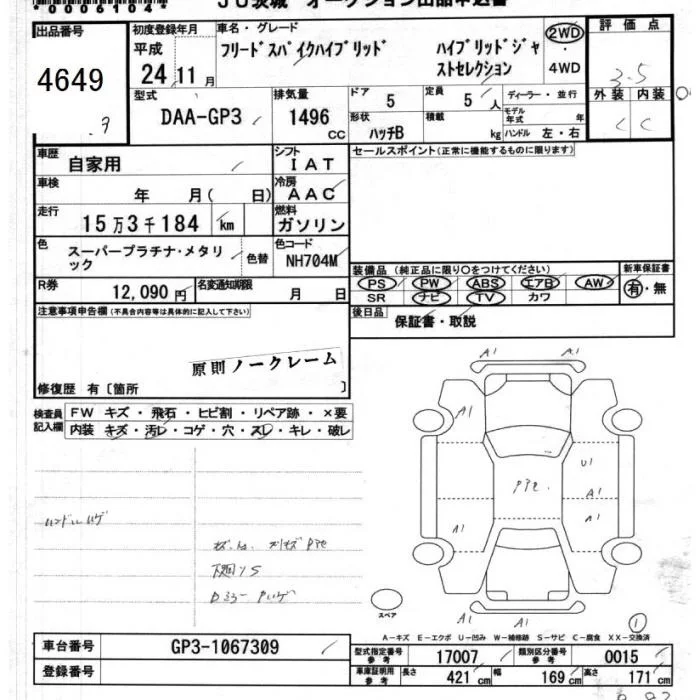 *0006104*
JU茨城 オークション出品申込書
出品番号
4649
初度登録年月
平成
24年11月
車名・グレード
フリードスパイクハイブリッド
ハイブリッドジャストセレクション
2WD
・
4WD
評価点
3.5
外装 内装
C C
型式
DAA-GP3
排気量
1496
CC
ドア
5
定員
5 人
ディーラー・並行
形状
ハッチB
積載
kg
モデル年式 年
ハンドル 左・右
車歴
自家用
シフト
IAT
車検
年 月( 日)
冷房
AAC
走行
15万3千184 km
燃料
ガソリン
色
スーパープラチナ・メタリック
色替
色コード
NH704M
R券
12,090円
名変通知期限
月 日
セールスポイント(正常に機能するものに限ります)
装備品 (純正品に限り○をつけてください)
PS PW ABS エアB AW
SR ナビ TV カワ
新車保証書
有・無
後日品
保証書・取説
注意事項申告欄(不具合内容等は具体的に記入して下さい)
原則ノークレーム
修復歴 有〔箇所 〕
検査員記入欄
FW キズ・飛石・ヒビ割・リペア跡・×要
内装 キズ・汚レ・コゲ・穴・スレ・キレ・破レ
ハンドルハゲ
A1 A1
A1
U1
A1
A1
A1
A1 A1
スペア
①
A-キズ E-エクボ U-凹み W-補修跡 S-サビ C-腐食 XX-交換済
車台番号
GP3-1067309
登録番号
型式指定番号
参考
17007
類別区分番号
参考
0015
車庫証明用
参考
長さ
421 cm
幅
169 cm
高さ
171 cm